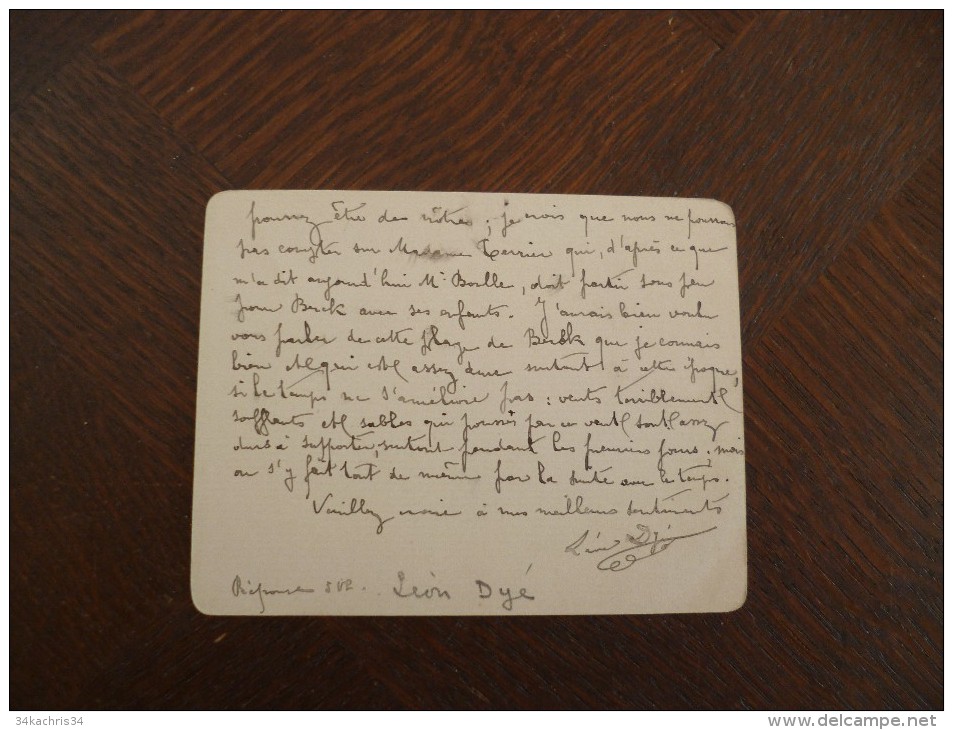 pourrez être des nôtres ; je crois que nous ne pouvons
pas compter sur Madame Terrier qui, d'après ce que
m'a dit aujourd'hui Mr Boulle, doit partir sous peu
pour Berck avec ses enfants. J'aurais bien voulu
vous parler de cette plage de Berck que je connais
bien et qui est assez dure surtout à cette époque,
si le temps ne s'améliore pas : vents terriblement
soufflants et sables qui poussés par ce vent sont assez
durs à supporter, surtout pendant les premiers jours ; mais
on s'y fait tout de même par la suite avec le temps.
Veuillez croire à mes meilleurs sentiments
Léon Dyé
Réponse SVP. Léon Dyé
34kachris34
www.delcampe.net